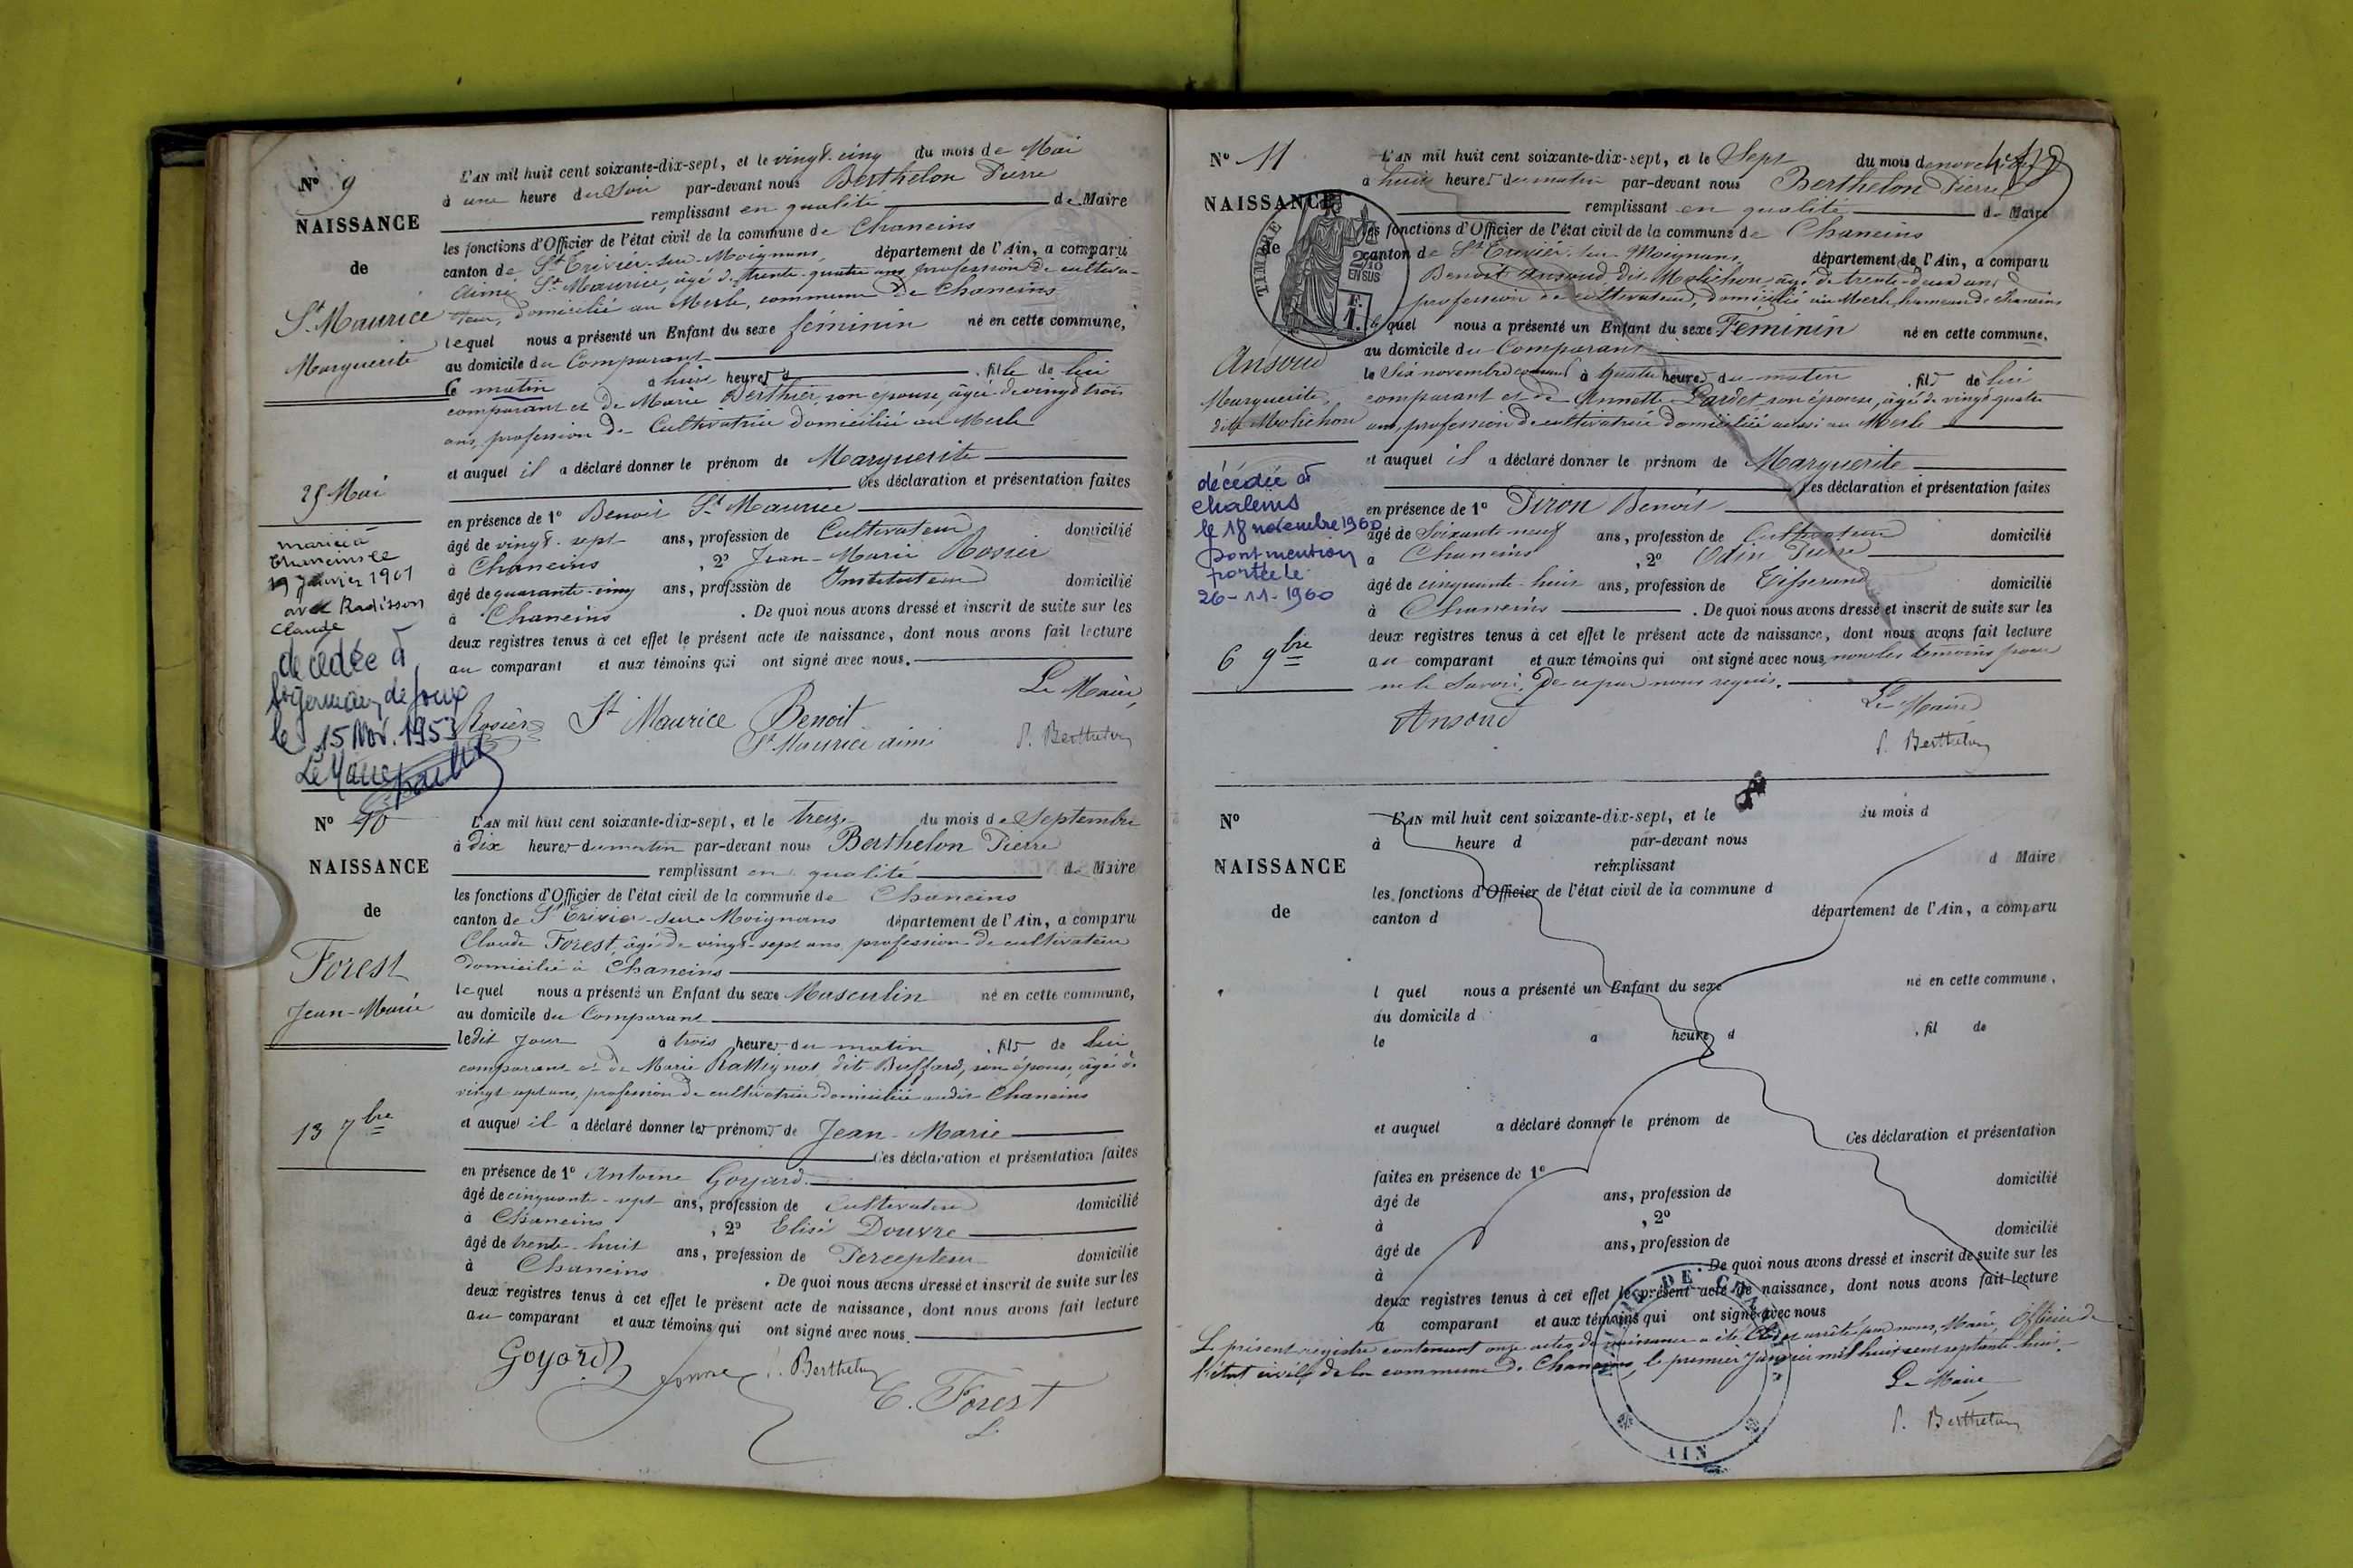 Nº 9
NAISSANCE
de
St Maurice
Marguerite
25 Mai
mariée à
Chaneins le
19 Janvier 1901
avec Radisson
Claude
décédée à
St germain de Joux
le 15 Nov. 1953
Le Maire
L'AN mil huit cent soixante-dix-sept, et le vingt-cinq du mois de Mai
à une heure du Soir par-devant nous Berthelon Pierre
remplissant en qualité de Maire
les fonctions d'Officier de l'état civil de la commune de Chaneins
canton de St Trivier-sur-Moignans, département de l'Ain, a comparu
Aimé St Maurice, âgé de trente-quatre ans profession de cultiva-
teur, domicilié au Merle, commune de Chaneins
lequel nous a présenté un Enfant du sexe féminin né en cette commune,
au domicile du Comparant
Ce matin à huit heures d fille de lui
comparant et de Marie Berthier, son épouse, âgée de vingt trois
ans, profession de Cultivatrice domiciliée au Merle
et auquel il a déclaré donner le prénom de Marguerite
Ces déclaration et présentation faites
en présence de 1º Benoit St Maurice
âgé de vingt-sept ans, profession de Cultivateur domicilié
à Chaneins, 2º Jean-Marie Rosier
âgé de quarante-cinq ans, profession de Instituteur domicilié
à Chaneins. De quoi nous avons dressé et inscrit de suite sur les
deux registres tenus à cet effet le présent acte de naissance, dont nous avons fait lecture
au comparant et aux témoins qui ont signé avec nous.
Le Maire
Rosier St Maurice Benoit
St Maurice aimé P. Berthelon
Nº 10
NAISSANCE
de
Forest
Jean-Marie
13 7bre
L'AN mil huit cent soixante-dix-sept, et le treize du mois de Septembre
à dix heures du matin par-devant nous Berthelon Pierre
remplissant en qualité de Maire
les fonctions d'Officier de l'état civil de la commune de Chaneins
canton de St Trivier-sur-Moignans département de l'Ain, a comparu
Claude Forest, âgé de vingt-sept ans, profession de cultivateur
domicilié à Chaneins
lequel nous a présenté un Enfant du sexe Masculin né en cette commune,
au domicile du Comparant
ledit jour à trois heures du matin, fils de lui
comparant et de Marie Rattignat, dit Buffard, son épouse, âgée de
vingt sept ans, profession de cultivatrice domiciliée audit Chaneins
et auquel il a déclaré donner les prénoms de Jean-Marie
Ces déclaration et présentation faites
en présence de 1º Antoine Goyard
âgé de cinquante-sept ans, profession de Cultivateur domicilié
à Chaneins, 2º Elisé Douvre
âgé de trente-huit ans, profession de Percepteur domicilié
à Chaneins. De quoi nous avons dressé et inscrit de suite sur les
deux registres tenus à cet effet le présent acte de naissance, dont nous avons fait lecture
au comparant et aux témoins qui ont signé avec nous.
Goyard P. Berthelon
C. Forest
Nº 11
NAISSANCE
de
TIMBRE
2/10
EN SUS
F.
1.
Ansoud
Marguerite,
dite Molichon
décédée à
chaleins
le 18 novembre 1960
dont mention
portée le
26-11-1960
6 9bre
L'AN mil huit cent soixante-dix-sept, et le Sept du mois de novembre
à huit heures du matin par-devant nous Berthelon Pierre
remplissant en qualité de Maire
les fonctions d'Officier de l'état civil de la commune de Chaneins
canton de St Trivier-sur Moignans, département de l'Ain, a comparu
Benoit Ansoud, dit Molichon âgé de trente-deux ans
profession de cultivateur, domicilié au Merle, hameau de Chaneins
lequel nous a présenté un Enfant du sexe Féminin né en cette commune.
au domicile du Comparant
le Six novembre courant à quatre heures du matin, fils de lui
comparant et de Annette Lardet, son épouse, âgée de vingt-quatre
ans, profession de cultivatrice domiciliée aussi au Merle
et auquel il a déclaré donner le prénom de Marguerite
Ces déclaration et présentation faites
en présence de 1º Piron Benoit
âgé de Soixante neuf ans, profession de Cultivateur domicilié
à Chaneins, 2º Odin Pierre
âgé de cinquante-huit ans, profession de Tisserand domicilié
à Chaneins. De quoi nous avons dressé et inscrit de suite sur les
deux registres tenus à cet effet le présent acte de naissance, dont nous avons fait lecture
au comparant et aux témoins qui ont signé avec nous, non les témoins pour
ne le savoir, de ce par nous requis.
Le Maire
Ansoud
P. Berthelon
Nº
NAISSANCE
de
L'AN mil huit cent soixante-dix-sept, et le du mois d
à heure d par-devant nous
remplissant d Maire
les fonctions d'Officier de l'état civil de la commune d
canton d département de l'Ain, a comparu
l quel nous a présenté un Enfant du sexe né en cette commune,
au domicile d
le à heure d, fil de
et auquel a déclaré donner le prénom de
Ces déclaration et présentation
faites en présence de 1º
âgé de ans, profession de domicilié
à, 2º
âgé de ans, profession de domicilié
à. De quoi nous avons dressé et inscrit de suite sur les
deux registres tenus à cet effet le présent acte de naissance, dont nous avons fait lecture
à comparant et aux témoins qui ont signé avec nous
Le présent registre contenant onze actes de naissance a été Clos et arrêté par nous, Maire, Officier de
l'état civil de la commune de Chaneins, le premier Janvier mil huit cent septante-huit.
Le Maire
P. Berthelon
AIN